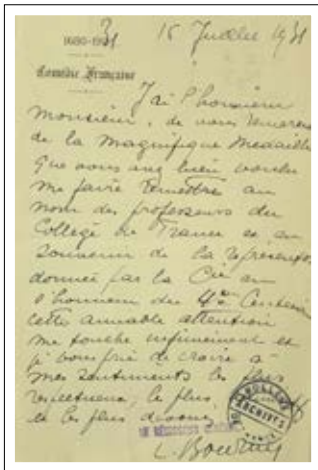 1680-1931
15 Juillet 1931
Comédie Française
J'ai l'honneur
Monsieur, de vous remercier
de la magnifique médaille
que vous avez bien voulu
me faire remettre au
nom des professeurs du
Collège de France et en
souvenir de la représentation
donnée par la Cie en
l'honneur du 4ème Centenaire
cette aimable attention
me touche infiniment et
je vous prie de croire à
mes sentiments les plus
respectueux, le plus
et les plus dévoués
ARCHIVES